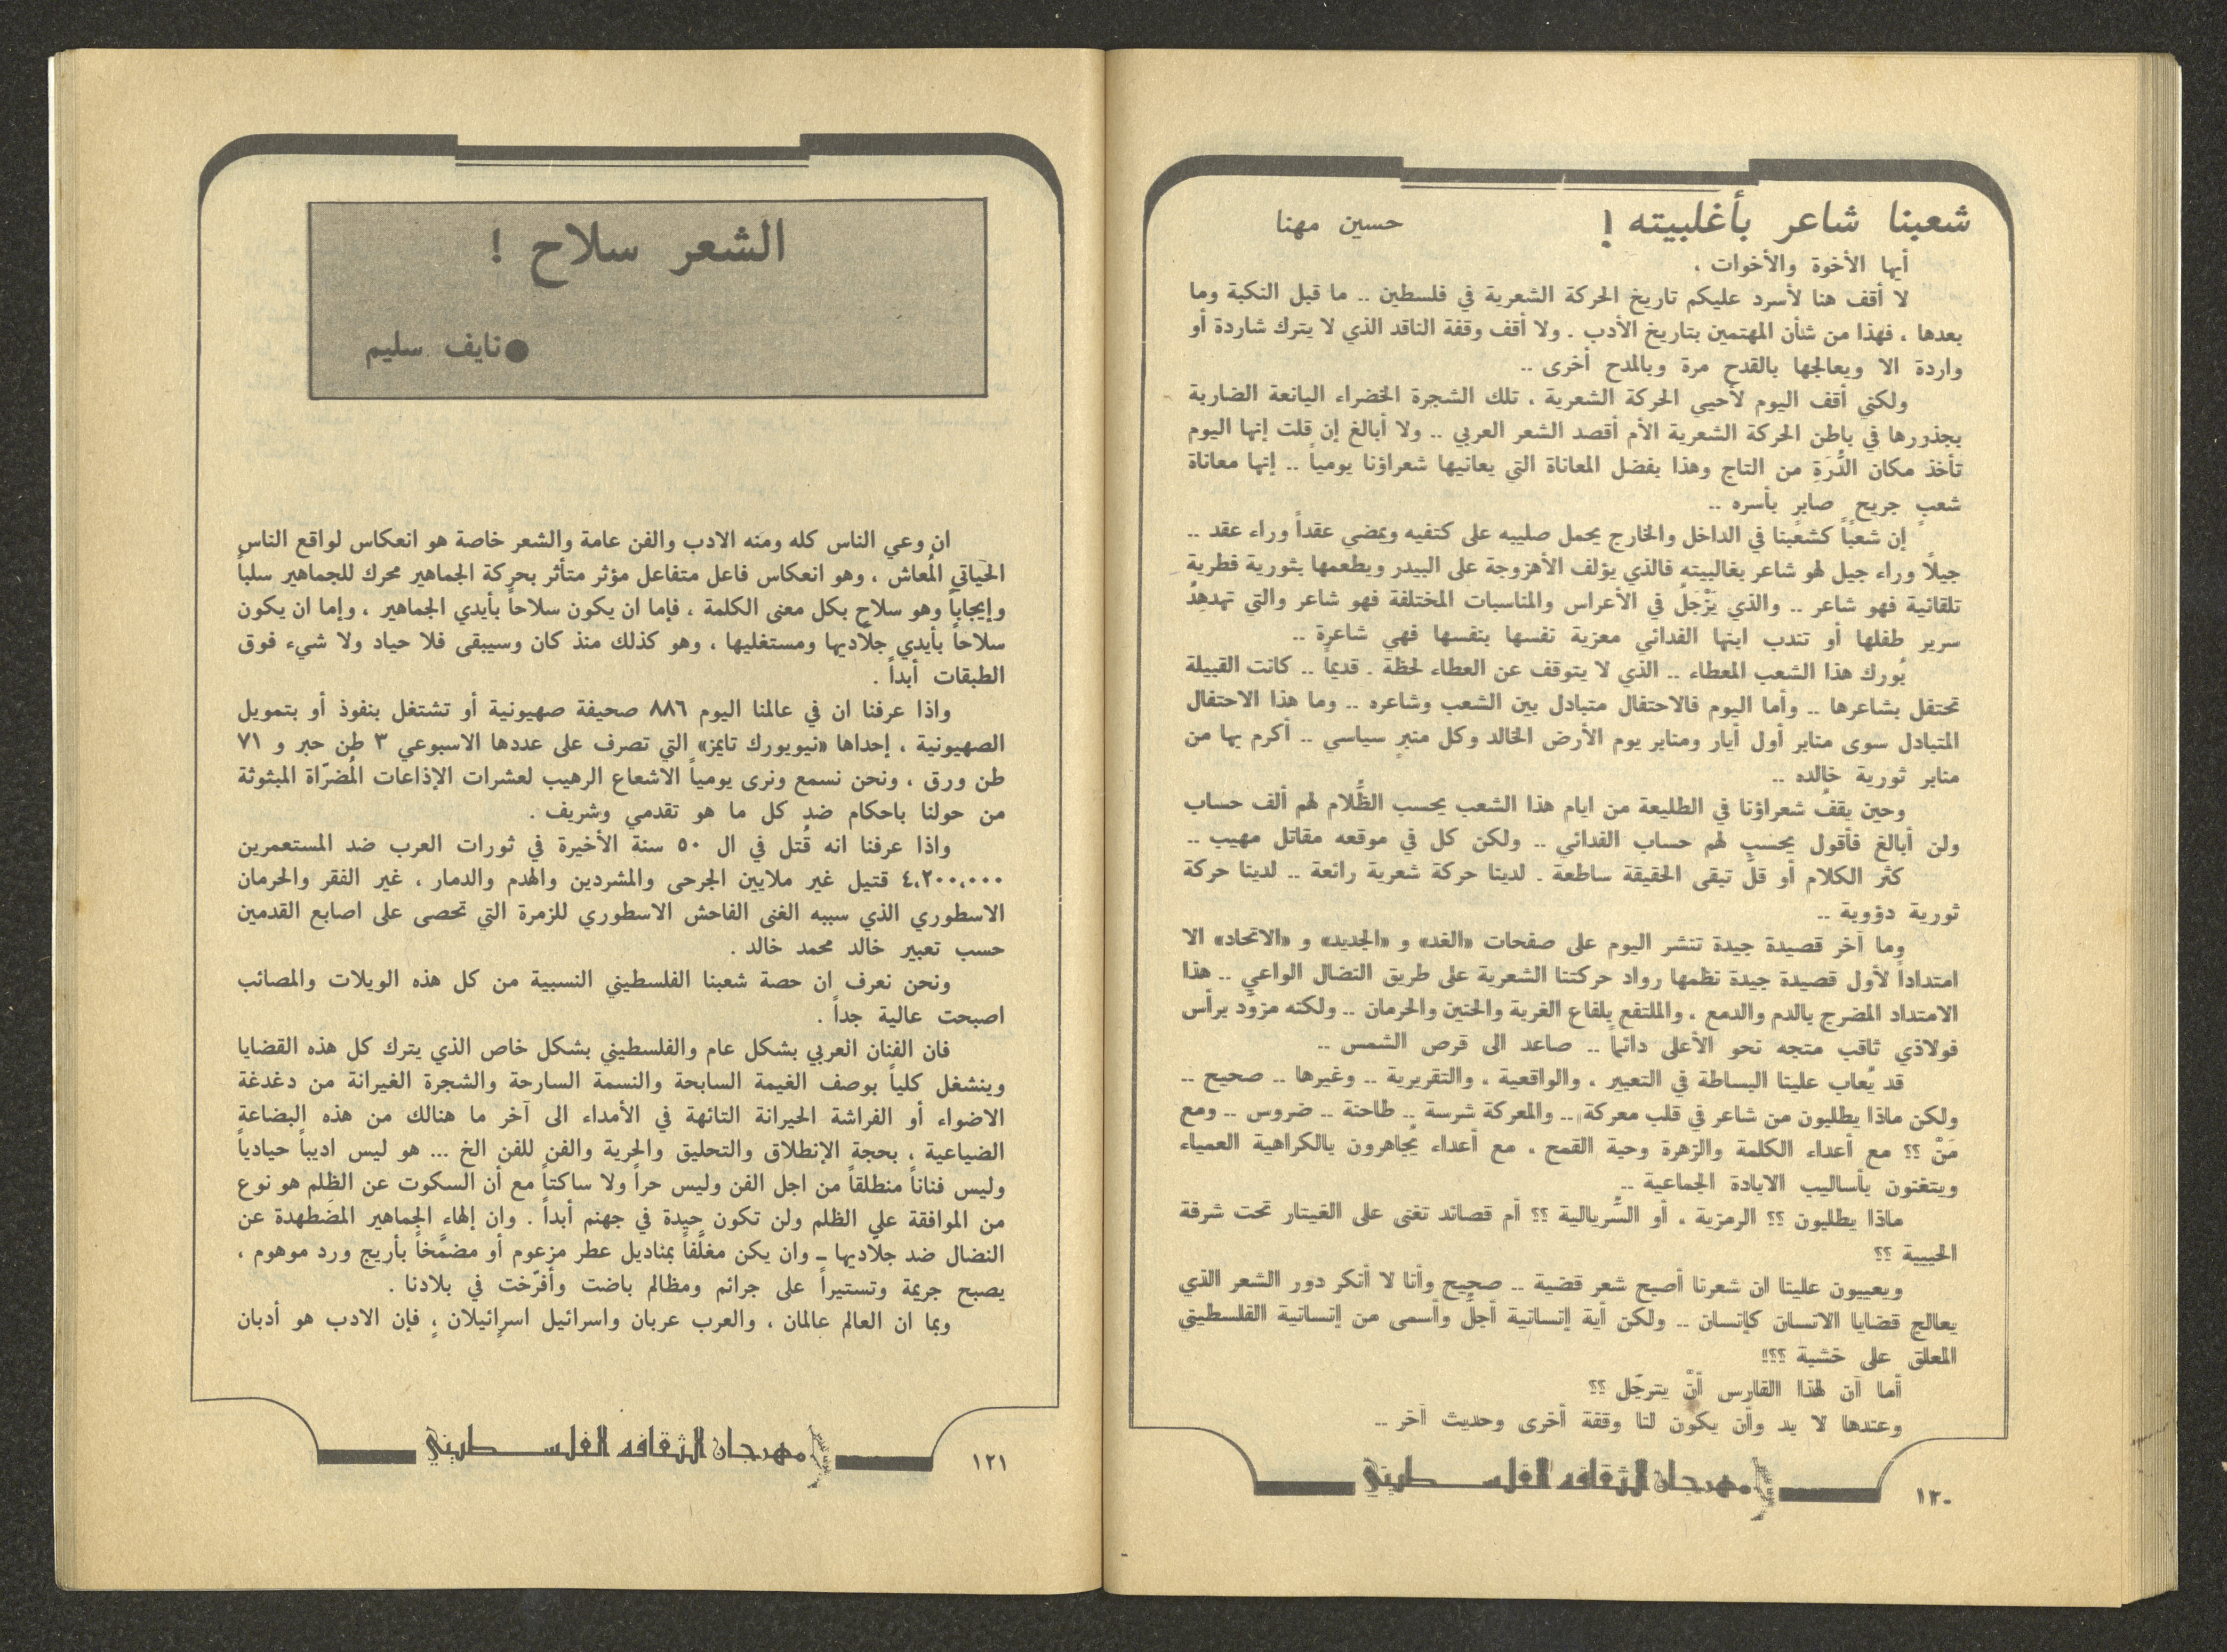 شعبنا شاعر بأغلبيته !
حسين مهنا
أيها الأخوة والأخوات ،
لا أقف هنا لأسرد عليكم تاريخ الحركة الشعرية في فلسطين .. ما قبل النكبة وما
بعدها ، فهذا من شأن المهتمين بتاريخ الأدب . ولا أقف وقفة الناقد الذي لا يترك شاردة أو
واردة الا ويعالجها بالقدح مرة وبالمدح أخرى ..
ولكني أقف اليوم لأحيي الحركة الشعرية ، تلك الشجرة الخضراء اليانعة الضاربة
بجذورها في باطن الحركة الشعرية الأم أقصد الشعر العربي .. ولا أبالغ إن قلت إنها اليوم
تأخذ مكان الدُّرَةِ من التاج وهذا بفضل المعاناة التي يعانيها شعراؤنا يومياً .. إنها معاناة
شعبٍ جريح صابرٍ بأسره ..
إن شعباً كشعبنا في الداخل والخارج يحمل صليبه على كتفيه ويمضي عقداً وراء عقد ..
جيلاً وراء جيل لهو شاعر بغالبيته فالذي يؤلف الأهزوجة على البيدر ويطعمها بثورية فطريةٍ
تلقائية فهو شاعر .. والذي يَزْجَلُ في الأعراس والمناسبات المختلفة فهو شاعر والتي تهدهدُ
سرير طفلها أو تندب ابنها الفدائي معزية نفسها بنفسها فهي شاعرة ..
بُورك هذا الشعب المعطاء .. الذي لا يتوقف عن العطاء لحظة . قديماً .. كانت القبيلة
تحتفل بشاعرها .. وأما اليوم فالاحتفال متبادل بين الشعب وشاعره .. وما هذا الاحتفال
المتبادل سوى منابر أول أيار ومنابر يوم الأرض الخالد وكل منبرٍ سياسي .. أكرم بها من
منابر ثورية خالده ..
وحين يقفُ شعراؤنا في الطليعة من ايام هذا الشعب يحسب الظُّلام لهم ألف حساب
ولن أبالغ فأقول يحسب لهم حساب الفدائي .. ولكن كل في موقعه مقاتل مهيب ..
كثر الكلام أو قلَّ تبقى الحقيقة ساطعة . لدينا حركة شعرية رائعة .. لدينا حركة
ثورية دؤوبة ..
وما آخر قصيدة جيدة تنشر اليوم على صفحات «الغد» و «الجديد» و «الاتحاد» الا
امتداداً لأول قصيدة جيدة نظمها رواد حركتنا الشعرية على طريق النضال الواعي .. هذا
الامتداد المضرج بالدم والدمع ، والملتفع بلفاع الغربة والحنين والحرمان .. ولكنه مزوّد برأس
فولاذي ثاقب متجه نحو الأعلى دائماً .. صاعد الى قرص الشمس ..
قد يُعاب علينا البساطة في التعبير ، والواقعية ، والتقريرية .. وغيرها .. صحيح ..
ولكن ماذا يطلبون من شاعر في قلب معركة .. والمعركة شرسة .. طاحنة .. ضروس .. ومع
مَنْ ؟؟ مع أعداء الكلمة والزهرة وحبة القمح ، مع أعداء يُجاهرون بالكراهية العمياء
ويتغنون بأساليب الابادة الجماعية ..
ماذا يطلبون ؟؟ الرمزية ، أو السُّريالية ؟؟ أم قصائد تغنى على الغيتار تحت شرفة
الحبيبة ؟؟
ويعيبون علينا ان شعرنا أصبح شعر قضية .. صحيح وأنا لا أنكر دور الشعر الذي
يعالج قضايا الانسان كإنسان .. ولكن أية إنسانية أجلَّ وأسمى من إنسانية الفلسطيني
المعلق على خشبة ؟؟!!
أما آن لهذا الفارس أنْ يترجّل ؟؟
وعندها لا بد وأن يكون لنا وقفة أخرى وحديث آخر ..
مهرجان الثقافه الفلسطيني
١٢٠
الشعر سلاح !
● نايف سليم
ان وعي الناس كله ومنه الادب والفن عامة والشعر خاصة هو انعكاس لواقع الناس
الحَياتي المُعاش ، وهو انعكاس فاعل متفاعل مؤثر متأثر بحركة الجماهير محرك للجماهير سلباً
وإيجاباً وهو سلاح بكل معنى الكلمة ، فإما ان يكون سلاحاً بأيدي الجماهير ، وإما ان يكون
سلاحاً بأيدي جلّاديها ومستغليها ، وهو كذلك منذ كان وسيبقى فلا حياد ولا شيء فوق
الطبقات أبداً .
واذا عرفنا ان في عالمنا اليوم ٨٨٦ صحيفة صهيونية أو تشتغل بنفوذ أو بتمويل
الصهيونية ، إحداها «نيويورك تايمز» التي تصرف على عددها الاسبوعي ٣ طن حبر و ٧١
طن ورق ، ونحن نسمع ونرى يومياً الاشعاع الرهيب لعشرات الإذاعات المُضرّاة المبثوثة
من حولنا باحكام ضد كل ما هو تقدمي وشريف .
واذا عرفنا انه قُتل في ال ٥٠ سنة الأخيرة في ثورات العرب ضد المستعمرين
٤،٢٠٠،٠٠٠ قتيل غير ملايين الجرحى والمشردين والهدم والدمار ، غير الفقر والحرمان
الاسطوري الذي سببه الغنى الفاحش الاسطوري للزمرة التي تحصى على اصابع القدمين
حسب تعبير خالد محمد خالد .
ونحن نعرف ان حصة شعبنا الفلسطيني النسبية من كل هذه الويلات والمصائب
اصبحت عالية جداً .
فان الفنان العربي بشكل عام والفلسطيني بشكل خاص الذي يترك كل هذه القضايا
وينشغل كلياً بوصف الغيمة السابحة والنسمة السارحة والشجرة الغيرانة من دغدغة
الاضواء أو الفراشة الحيرانة التائهة في الأمداء الى آخر ما هنالك من هذه البضاعة
الضياعية ، بحجة الإنطلاق والتحليق والحرية والفن للفن الخ ... هو ليس اديباً حيادياً
وليس فناناً منطلقاً من اجل الفن وليس حراً ولا ساكتاً مع أن السكوت عن الظلم هو نوع
من الموافقة علي الظلم ولن تكون حيدة في جهنم أبداً . وان إلهاء الجماهير المضَطهدة عن
النضال ضد جلّاديها ــ وان يكن مغلّفاً بمناديل عطر مزعوم أو مضمَّخاً بأريج ورد موهوم ،
يصبح جريمة وتستيراً على جرائم ومظالم باضت وأفرّخت في بلادنا .
وبما ان العالم عالمان ، والعرب عربان واسرائيل اسرائيلان ، فإن الادب هو أدبان
مهرجان الثقافه الفلسطيني
١٢١